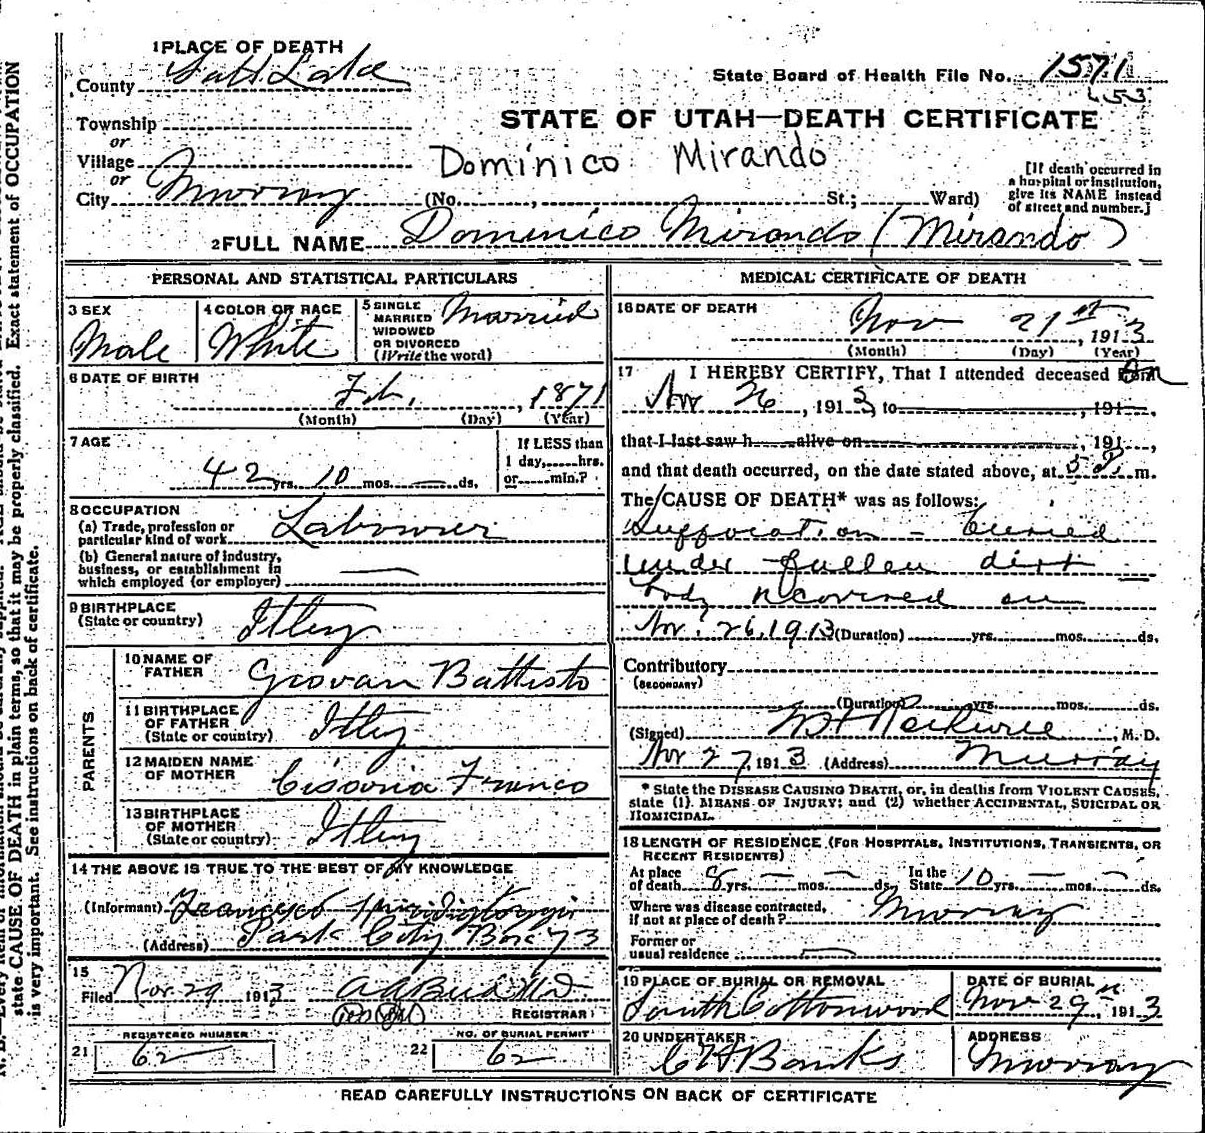 1 PLACE OF DEATH
County Salt Lake
State Board of Health File No. 1571
453
Township
or
Village
or
City Murray
STATE OF UTAH—DEATH CERTIFICATE
Dominico Mirando
(No. , St.; Ward)
[If death occurred in
a hospital or institution,
give its NAME instead
of street and number.]
2 FULL NAME Dominico Mirando (Mirando)
PERSONAL AND STATISTICAL PARTICULARS
3 SEX
Male
4 COLOR OR RACE
White
5 SINGLE
MARRIED
WIDOWED
OR DIVORCED
(Write the word)
Married
6 DATE OF BIRTH
Feb. , 1871
(Month) (Day) (Year)
7 AGE
42 yrs. 10 mos. — ds.
If LESS than
1 day, hrs.
or min.?
8 OCCUPATION
(a) Trade, profession or
particular kind of work Labourer
(b) General nature of industry,
business, or establishment in
which employed (or employer) —
9 BIRTHPLACE
(State or country) Itley
PARENTS
10 NAME OF
FATHER Giovan Battisto
11 BIRTHPLACE
OF FATHER
(State or country) Itley
12 MAIDEN NAME
OF MOTHER Franco
13 BIRTHPLACE
OF MOTHER
(State or country) Itley
14 THE ABOVE IS TRUE TO THE BEST OF MY KNOWLEDGE
(Informant) Francesco
(Address) Park City Box 73
15
Filed Nov. 29 1913
REGISTRAR
REGISTERED NUMBER
21 62
NO. OF BURIAL PERMIT
22 62
MEDICAL CERTIFICATE OF DEATH
16 DATE OF DEATH
Nov 21st, 1913
(Month) (Day) (Year)
17 I HEREBY CERTIFY, That I attended deceased on
Nov 26, 1913 to , 191 ,
that I last saw h alive on , 191 ,
and that death occurred, on the date stated above, at 5 P. m.
The CAUSE OF DEATH* was as follows:
Suffocation - buried
under fallen dirt
body recovered on
Nov. 26, 1913 (Duration) yrs. mos. ds.
Contributory
(SECONDARY)
(Duration) yrs. mos. ds.
(Signed) M. D.
Nov 27, 1913 (Address) Murray
* State the DISEASE CAUSING DEATH, or, in deaths from VIOLENT CAUSES,
state (1) MEANS OF INJURY; and (2) whether ACCIDENTAL, SUICIDAL OR
HOMICIDAL.
18 LENGTH OF RESIDENCE (FOR HOSPITALS, INSTITUTIONS, TRANSIENTS, OR
RECENT RESIDENTS)
At place
of death 8 yrs. — mos. — ds.
In the
State 10 yrs. — mos. — ds.
Where was disease contracted,
if not at place of death? Murray
Former or
usual residence —
19 PLACE OF BURIAL OR REMOVAL
South Cottonwood
DATE OF BURIAL
Nov 29th, 1913
20 UNDERTAKER
C H Banks
ADDRESS
Murray
READ CAREFULLY INSTRUCTIONS ON BACK OF CERTIFICATE
state CAUSE OF DEATH in plain terms, so that it may be properly classified. Exact statement of OCCUPATION
is very important. See instructions on back of certificate.